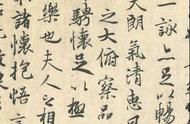 一詠亦足以暢
天朗氣清惠風
之大俯察品
騁懷足以極
樂也夫人之相
諸懷抱悟言